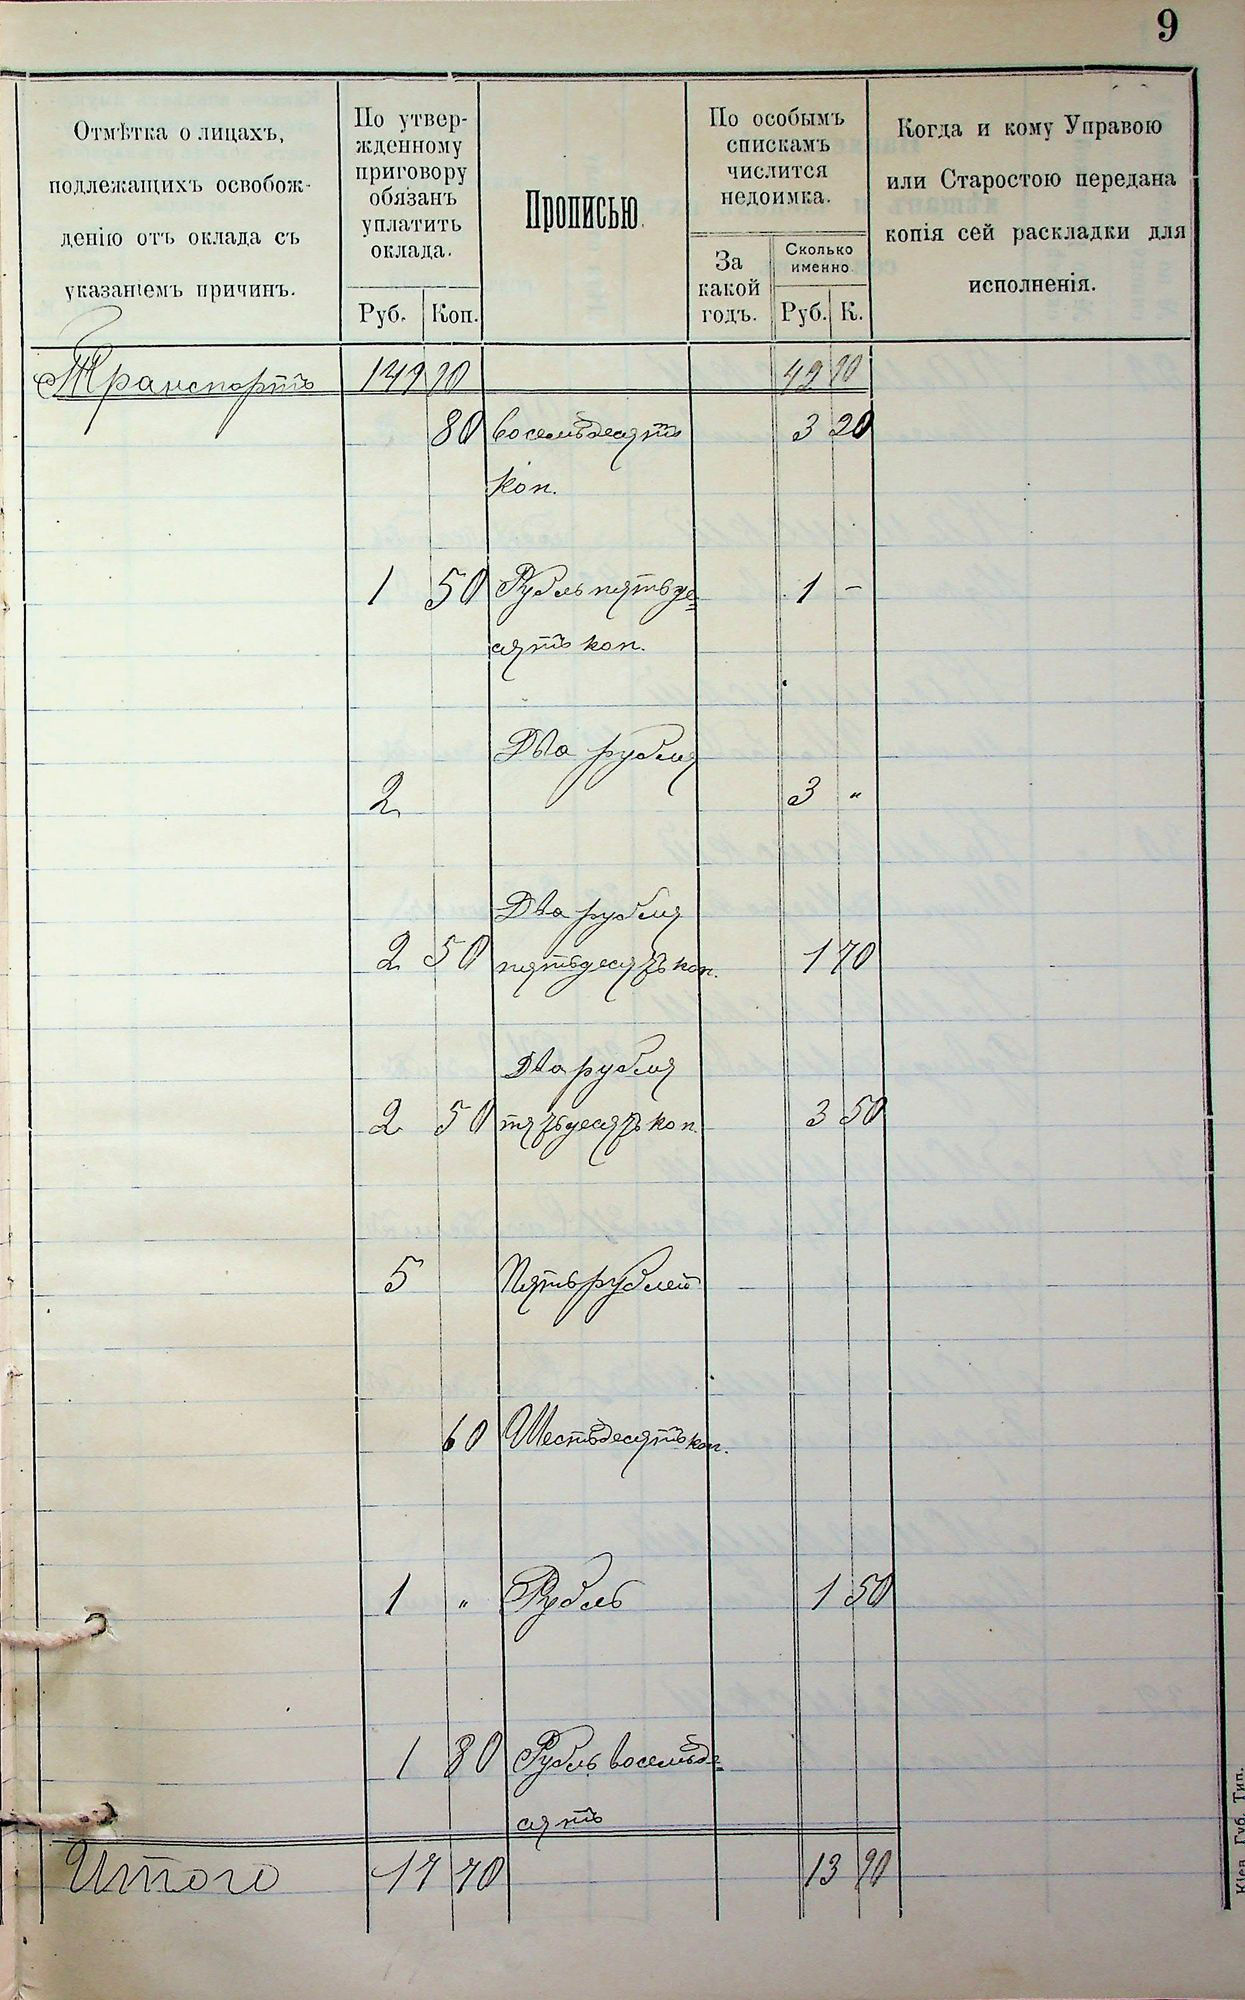 9
Отмѣтка о лицахъ,
подлежащихъ освобож-
денію отъ оклада съ
указаніемъ причинъ.
По утвер-
жденному
приговору
обязанъ
уплатить
оклада.
Руб. Коп.
Прописью.
По особымъ
спискамъ
числится
недоимка.
За
какой
годъ.
Сколько
именно
Руб. К.
Когда и кому Управою
или Старостою передана
копія сей раскладки для
исполненія.
Транспортъ
80 восемьдесятъ 3 20
коп.
1 50 Рубль пятьде= 1 –
сятъ коп.
Два рубля
2 3 "
Два рубля
2 50 пятьдесятъ коп. 1 70
Два рубля
2 50 пятьдесятъ коп. 3 50
5 Пять рублей
60 Шестьдесятъ коп.
1 " Рубль 1 50
1 80 Рубль восемьде=
сятъ
Итого 17 70 13 90
Кіев. Губ. Тип.